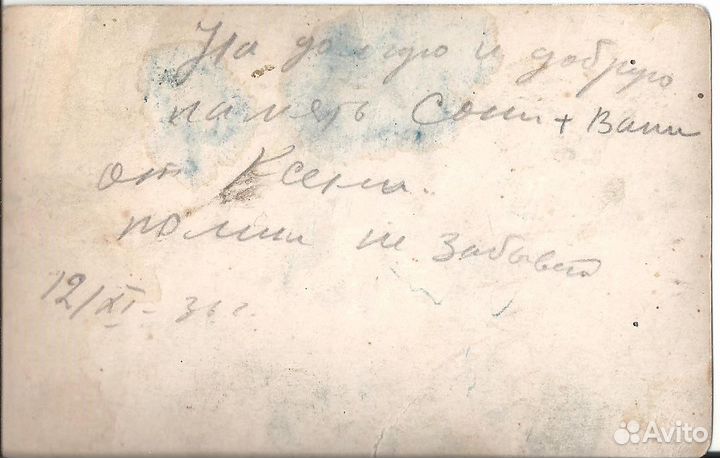 На долгую и добрую
память Сони + Вани
от Ксени.
помни не забывай
12/XI - 36 г.
Avito